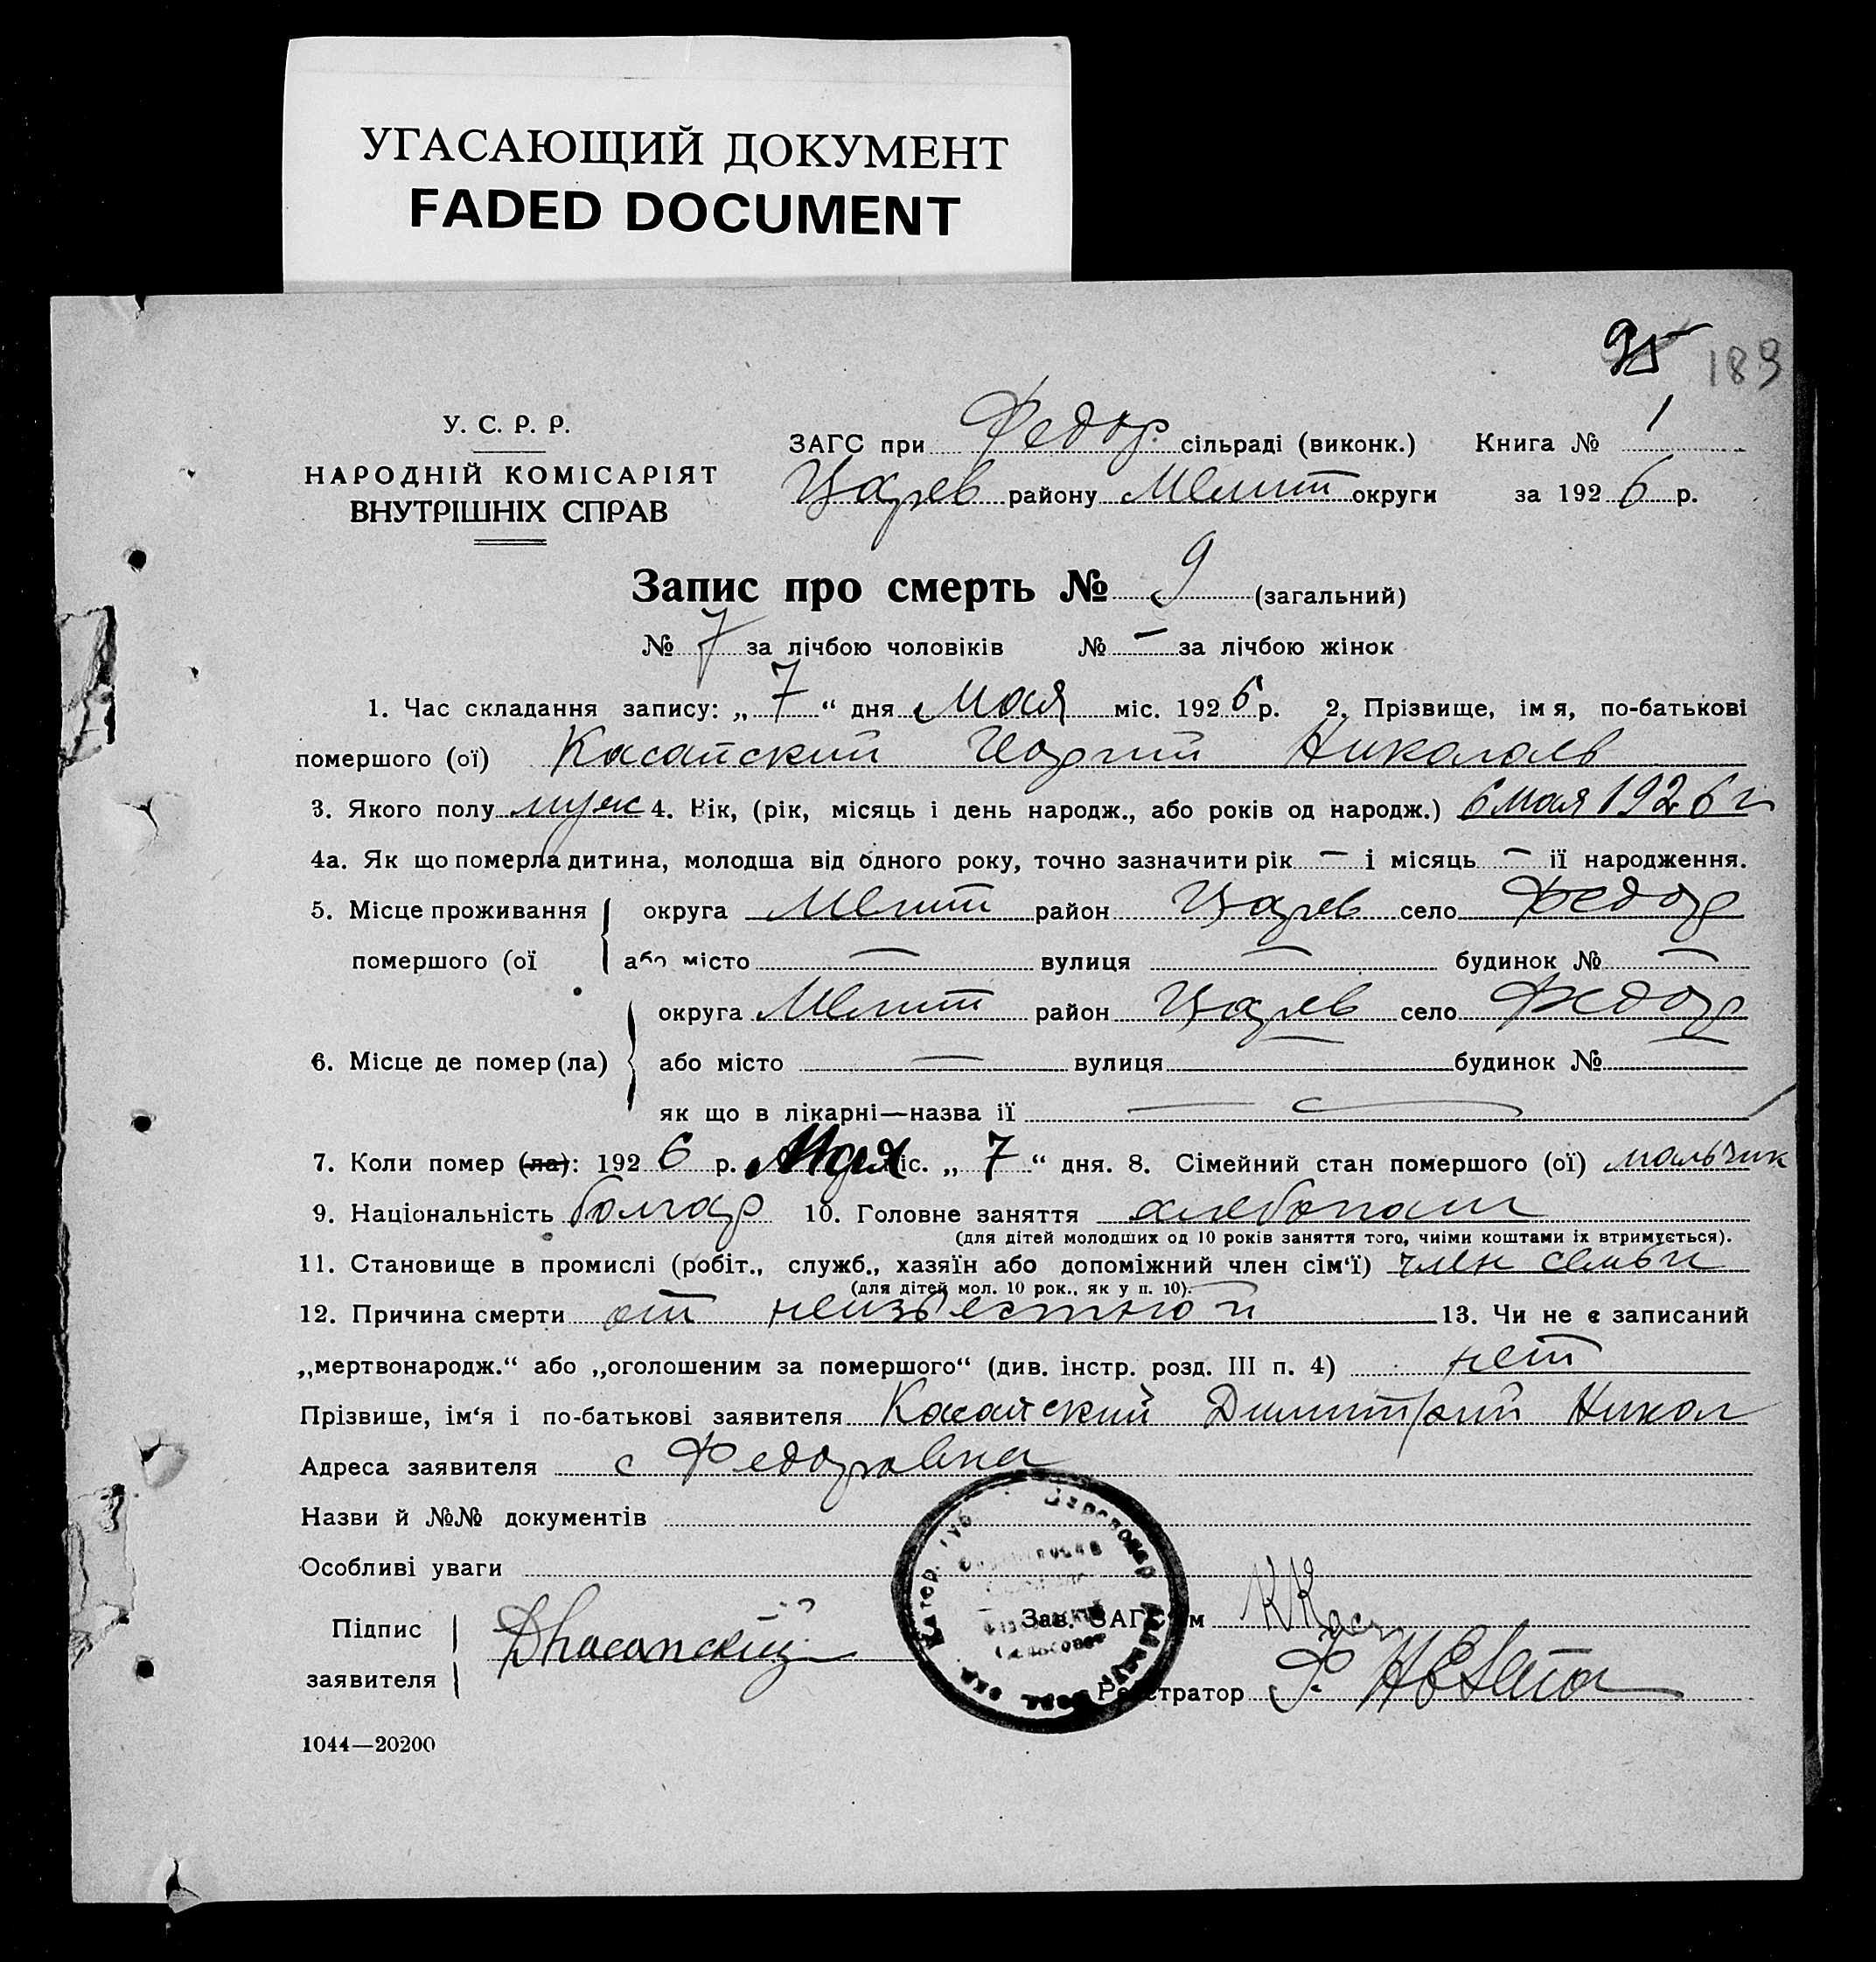 УГАСАЮЩИЙ ДОКУМЕНТ
FADED DOCUMENT
95 189
У. С. Р. Р.
НАРОДНІЙ КОМІСАРІЯТ
ВНУТРІШНІХ СПРАВ
ЗАГС при Федор. сільраді (виконк.) Книга № 1
Царев району Мелит округи за 1926 р.
Запис про смерть № 9 (загальний)
№ 7 за лічбою чоловіків № — за лічбою жінок
1. Час складання запису: „7“ дня мая міс. 1926 р. 2. Прізвище, імя, по-батькові
помершого (ої) Касапский Георгий Николаев
3. Якого полу муж 4. Вік, (рік, місяць і день народж., або років од народж.) 6 мая 1926 г
4а. Як що померла дитина, молодша від одного року, точно зазначити рік — і місяць — її народження.
5. Місце проживання округа Мелит район Царев село Федор
помершого (ої або місто — вулиця — будинок № —
округа Мелит район Царев село Федор
6. Місце де помер (ла) або місто — вулиця — будинок № —
як що в лікарні—назва її —
7. Коли помер (ла): 1926 р. Мая іс. „7“ дня. 8. Сімейний стан помершого (ої) мальчик
9. Національність болгар 10. Головне заняття хлебопаш
(для дітей молодших од 10 років заняття того, чиїми коштами їх втримується).
11. Становище в промислі (робіт., служб., хазяїн або допоміжний член сім'ї) член семьи
(для дітей мол. 10 рок., як у п. 10).
12. Причина смерти от неизвестной 13. Чи не є записаний
„мертвонародж.“ або „оголошеним за помершого“ (див. інстр. розд. III п. 4) нет
Прізвище, ім'я і по-батькові заявителя Касапский Димитрий Никол
Адреса заявителя с Федоровка
Назви й №№ документів
Особливі уваги
Підпис
заявителя
Зав. ЗАГС'ом
Реєстратор
1044—20200